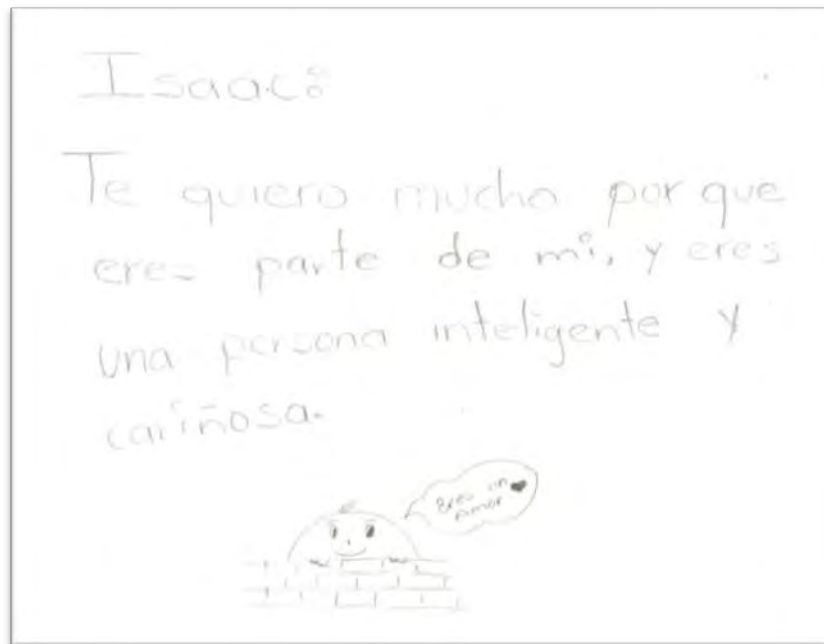 Isaac:
Te quiero mucho por que
eres parte de mi, y eres
una persona inteligente y
cariñosa.
Eres un
Amor